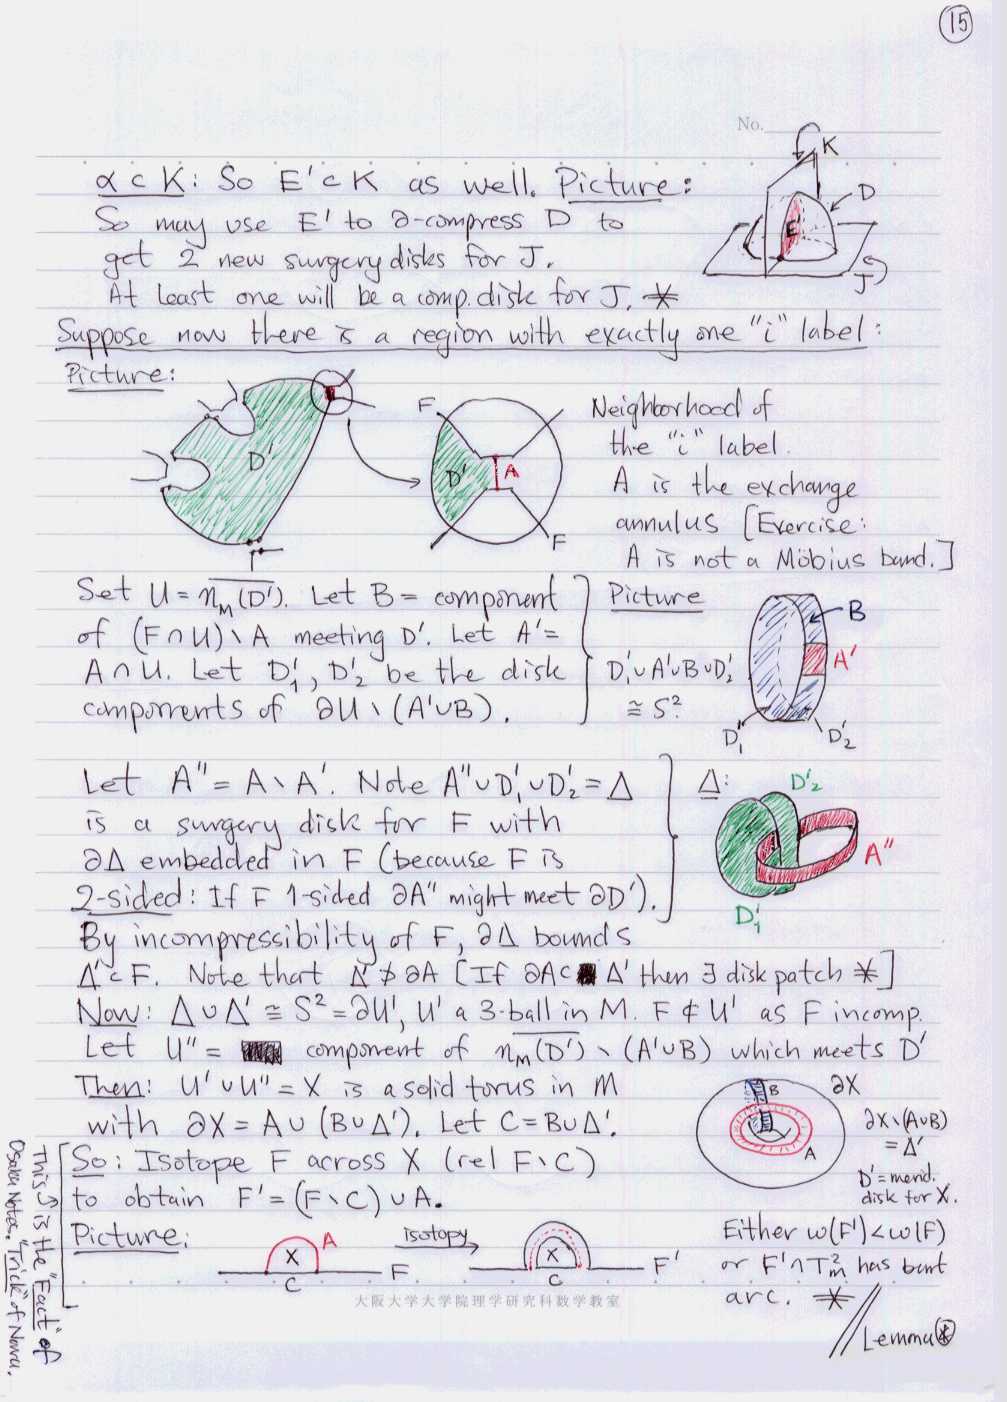 15
No.
α ⊂ K: So E' ⊂ K as well. Picture:
So may use E' to ∂-compress D to
get 2 new surgery disks for J.
At least one will be a comp. disk for J. ※
K
D
E'
J
Suppose now there is a region with exactly one "i" label:
Picture:
D'
F
D'
A
F
Neighborhood of
the "i" label.
A is the exchange
annulus [Exercise:
A is not a Möbius band.]
Set U = n_M(D'). Let B = component
of (F∩U)\A meeting D'. Let A' =
A∩U. Let D'₁, D'₂ be the disk
components of ∂U\(A'∪B).
Picture
D'₁∪A'∪B∪D'₂
≅ S².
B
A'
D'₁
D'₂
Let A'' = A\A'. Note A''∪D'₁∪D'₂ = Δ
is a surgery disk for F with
∂Δ embedded in F (because F is
2-sided: If F 1-sided ∂A'' might meet ∂D').
Δ:
D'₂
A''
D'₁
By incompressibility of F, ∂Δ bounds
Δ' ⊂ F. Note that Δ' ⊅ ∂A [If ∂A ⊂ Δ' then ∃ disk patch ※]
Now: Δ∪Δ' ≅ S² = ∂U', U' a 3-ball in M. F ⊄ U' as F incomp.
Let U'' = component of n_M(D')\(A'∪B) which meets D'
Then: U'∪U'' = X is a solid torus in M
with ∂X = A∪(B∪Δ'). Let C = B∪Δ'.
B
∂X
A
∂X\(A∪B)
= Δ'
D' = merid.
disk for X.
So: Isotope F across X (rel F\C)
to obtain F' = (F\C)∪A.
Picture:
X
A
C
F
isotopy
X
C
F'
Either w(F') < w(F)
or F'∩T²_m has bent
arc. ※
Lemma
This is the "Fact" of
Osaka Notes. "Trick" of Nowu.
大阪大学大学院理学研究科数学教室